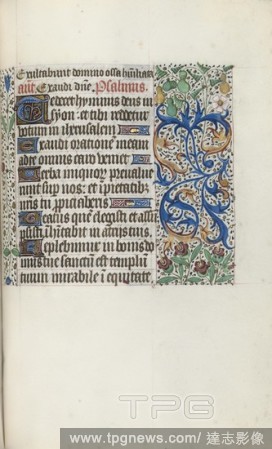 Exultabunt domino ossa humiliata
añt. Exaudi dñe. Psalmus.
Te decet hymnus deus in
syon: et tibi reddetur
votum in iherusalem
Exaudi orationē meam
ad te omnis caro veniet
Verba iniquorū preualue
runt sup nos: et ipietatib
nris tu ppiciaberis
Beatus quē elegisti et assū
psisti: īhitabit in atriis tuis.
Replebimur in bonis do
mus tue sanctū est templū
tuum mirabile ī equitate
TPG
www.tpgnews.com/達志影像